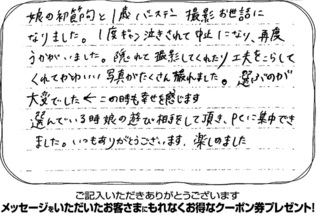 娘の初節句と1歳バースデー撮影お世話に
なりました。1度ギャン泣きされて中止になり、再度
うかがいました。隠れて撮影してくれたり工夫をこらして
くれてかわいい写真がたくさん撮れました。選ぶのが
大変でした←この時も幸せを感じます
選んでいる時娘の遊び相手をして頂き、PCに集中でき
ました。いつもありがとうございます。楽しめました
ご記入いただきありがとうございます
メッセージをいただいたお客さまにもれなくお得なクーポン券プレゼント!